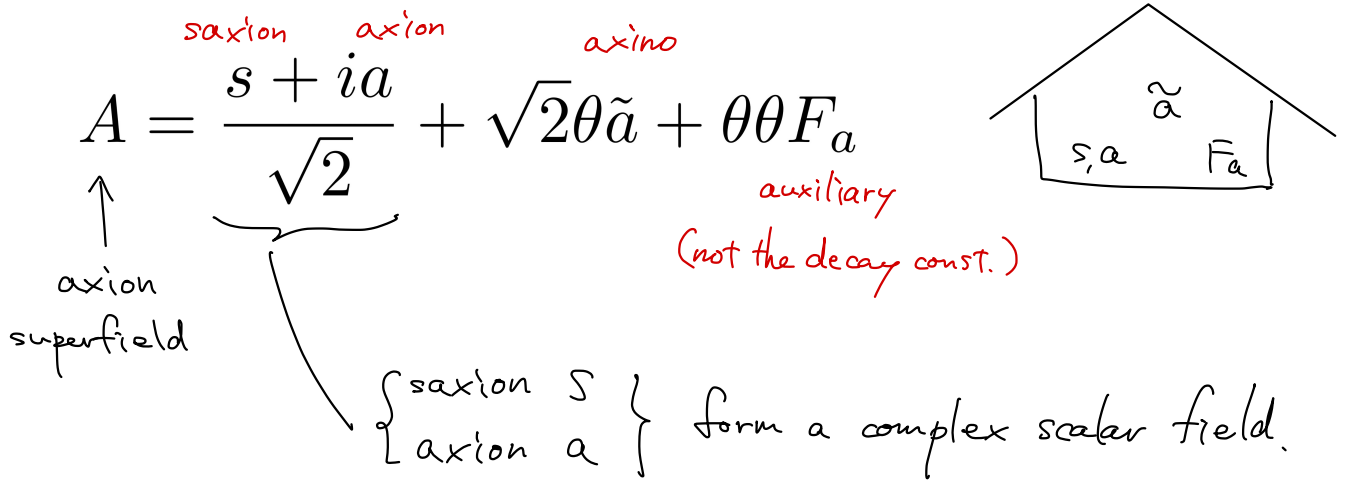 saxion axion axino
A = \frac{s + ia}{\sqrt{2}} + \sqrt{2}θã + θθF_a
ã
s,a F_a
auxiliary
(not the decay const.)
axion
superfield
{ saxion s
axion a } form a complex scalar field.